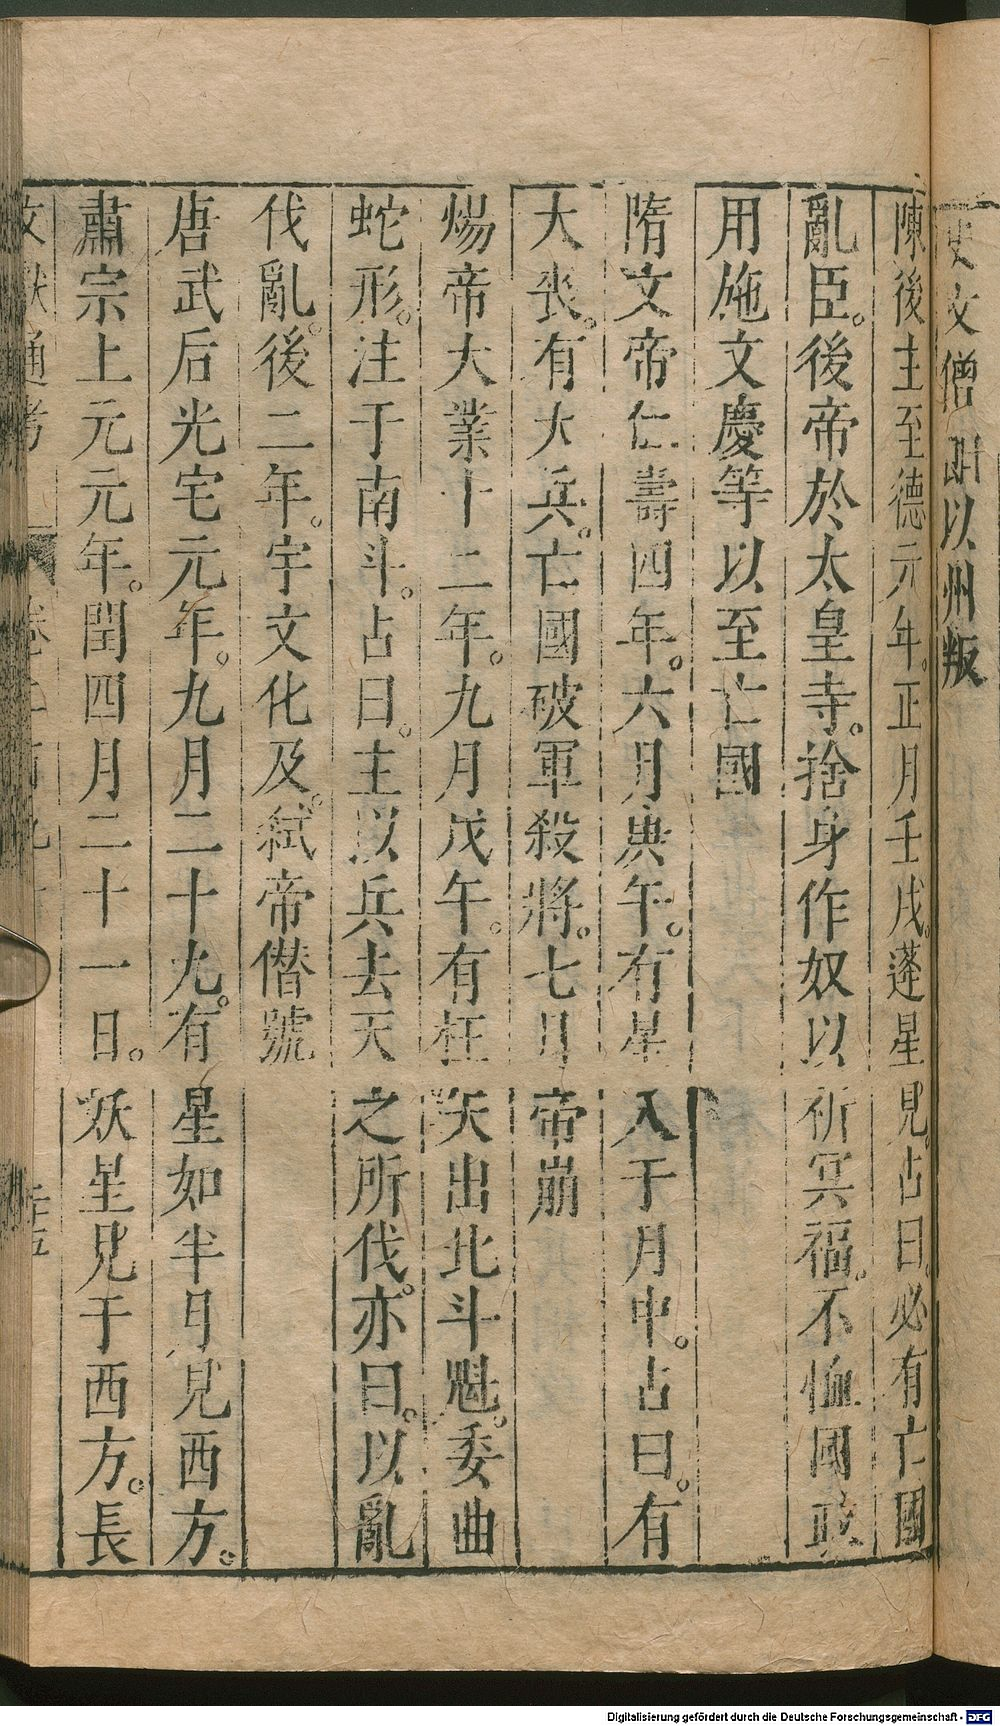 使文僧朗以州叛
陳後主至德元年。正月壬戌。蓬星見。占曰。必有亡國
亂臣。後帝於太皇寺。捨身作奴以祈冥福。不恤國政
用施文慶等以至亡國
隋文帝仁壽四年。六月庚午。有星入于月中。占曰。有
大喪。有大兵。亡國破軍殺將。七月帝崩
煬帝大業十二年。九月戊午。有枉矢出北斗魁。委曲
蛇形。注于南斗。占曰。主以兵去天之所伐。亦曰。以亂
伐亂。後二年。宇文化及。弑帝僭號
唐武后光宅元年。九月二十九。有星如半月見西方。
肅宗上元元年。閏四月二十一日。妖星見于西方。長
文獻通考
Digitalisierung gefördert durch die Deutsche Forschungsgemeinschaft - DFG